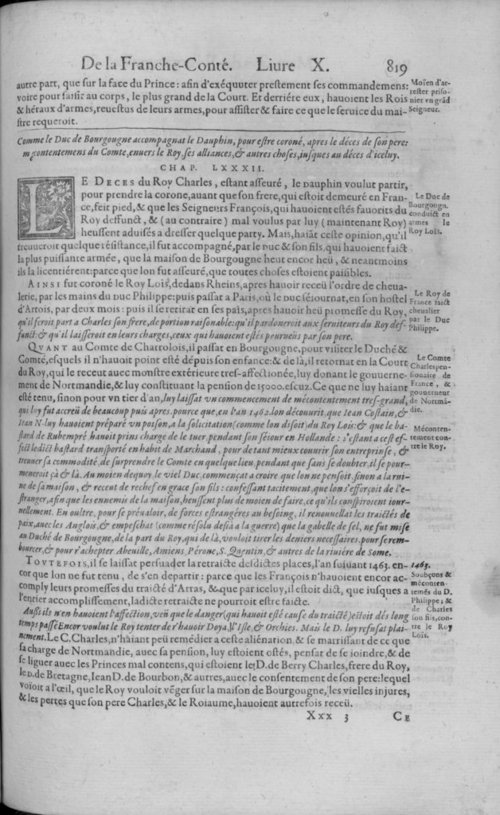 De la Franche-Conté. Liure X. 819
autre part, que sur la face du Prince: afin d'exéquuter prestement ses commandemens:
voire pour saisir au corps, le plus grand de la Court. Et derriére eux, hauoient les Rois
& héraux d'armes, reuestus de leurs armes, pour assister & faire ce que le seruice du mai-
stre requeroit.
Moïen d'ar-
rester priso-
nier vn grãd
Seigneur.
Comme le Duc de Bourgougne accompagnat le Dauphin, pour estre coroné, apres le déces de son pere:
mgontentemens du Comte, enuers le Roy, ses alliances, & autres choses, iusques au déces d'iceluy.
CHAP. LXXXII.
LE DECES du Roy Charles, estant asseuré, le Dauphin voulut partir,
pour prendre la corone, auant que son frere, qui estoit demeuré en Fran-
ce, feit pied, & que les Seigneurs François, qui hauoient estés fauorits du
Roy deffunct, & (au contraire) mal voulus par luy (maintenant Roy)
heussent aduisés a dresser quelque party. Mais, hasté ceste opinion, qu'il
treuueroit quelque résistance, il fut accompagné, par le Duc & son fils, qui hauoient faict
la plus puissante armée, que la maison de Bourgougne heut encor heü, & neantmoins
ils la licentiérent: parce que lon fut asseuré, que toutes choses estoient paisibles.
Le Duc de
Bourgougn.
conduict en
armes le
Roy Loïs.
AINSI fut coroné le Roy Loïs, dedans Rheins, apres hauoir receü l'ordre de cheua-
lerie, par les mains du Duc Philippe: puis passat a Paris, où le Duc séjournat, en son hostel
d'Artois, par deux mois: puis il se retirat en ses païs, apres hauoir heü promesse du Roy,
qu'il feroit part a Charles son frere, de portion raisonable: qu'il pardoneroit aux seruiteurs du Roy def-
funct: & qu'il laisseroit en leurs charges, ceux qui hauoient estés pourueus par son pere.
Le Roy de
France faict
cheualier
par le Duc
Philippe.
QUANT au Comte de Charrolois, il passat en Bourgougne, pour visiter le Duché &
Comté, esquels il n'hauoit point esté dépuis son enfance: & de là, il retornat en la Court
du Roy, qui le receut auec monstre extérieure tres-affectionée, luy donant le gouuerne-
ment de Normandie, & luy constituant la pension de 15000. escuz. Ce que ne luy haiant
esté tenu, sinon pour vn tier d'an, luy laissat vn commencement de mécontentement tres-grand,
qui luy fut accreü de beaucoup puis apres. pource que, en l'an 1462. lon découurit, que Iean Costain, &
Iean N. luy hauoient préparé vn poison, a la solicitation (comme lon disoit) du Roy Loïs: & que le ba-
stard de Rubempré hauoit prins charge de le tuer, pendant son séiour en Hollande: s'estant a cest ef-
fict ledict bastard transporté en habit de Marchand, pour de tant mieux couurir son entreprinse, &
treuuer sa commodité, de surprendre le Comte en quelque lieu, pendant que sans se doubter, il se pour-
meneroit çà & là. Au moïen dequoy, le viel Duc, commençat a croire que lon ne pensoit, sinon a la rui-
ne de sa maison, & receut de rechef en grace son fils: confessant tacitement, que lon s'efforçoit de l'e-
stranger, afin que les ennemis de la maison, heussent plus de moïen de faire, ce qu'ils conspiroient tour-
nellement. En oultre, pour se préualoir, de forces estrangéres au besoing, il renouuellat les traictés de
paix, auec les Anglois, & empeschat (comme résolu desià a la guerre) que la gabelle de sel, ne fut mise
au Duché de Bourgougne, de la part du Roy, qui, de là, vouloit tirer les deniers necessaires, pour se rem-
bourcer, & pour r'achepter Abeuille, Amiens, Pérone, S. Quentin, & autres de la riuiére de Some.
Le Comte
Charles pen-
sionaire de
France, &
gouuerneur
de Norman-
die.
Méconten-
tement con-
tre le Roy.
TOUTEFOIS, il se laissat persuader la retraicte desdictes places, l'an suiuant 1463. en-
cor que lon ne fut tenu, de s'en departir: parce que les François n'hauoient encor ac-
comply leurs promesses du traicté d'Arras, && que par iceluy, il estoit dict, que iusques a
l'entier accomplissement, ladicte retraicte ne pourroit estre faicte.
Aussi ils n'en hauoient l'affection, veü que le danger (qui hauoit esté cause du traicté) estoit dés long
temps passé. Encor voulut le Roy tenter de r'hauoir Doya, l'Isle, & Orchies. Mais le D. luy refusat plai-
nement. Le C. Charles, n'haiant peu remédier a ceste aliénation, & se marrissant de ce que
sa charge de Normandie, auec sa pension, luy estoient ostés, pensat de se joindre, & de
se liguer auec les Princes mal contens, qui estoient le D. de Berry Charles, frere du Roy,
le D. de Bretagne, Iean D. de Bourbon, & autres, auec le consentement de son pere: lequel
voïoit a l'œil, que le Roy vouloit vẽger sur la maison de Bourgougne, les vielles injures,
& les pertes que son pere Charles, & le Roiaume, hauoient autrefois receü.
1463.
Soubçons &
méconten-
temẽs du D.
Philippe, &
de Charles
son fils, con-
tre le Roy
Loïs.
Xxx 3 CE